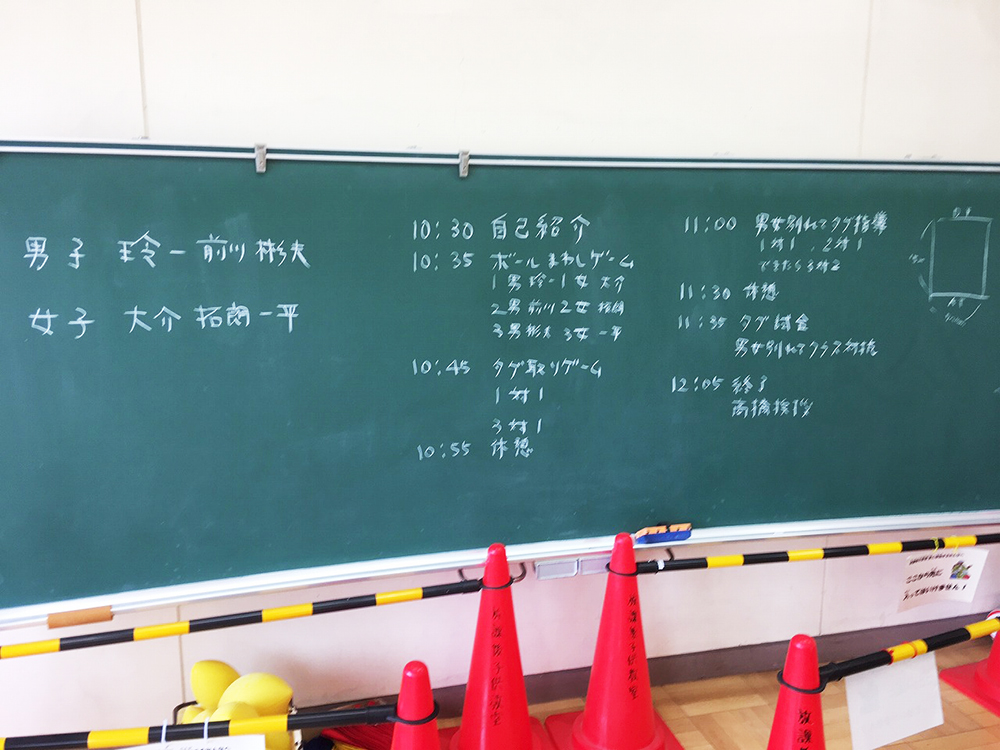 男子 玲一 前川 彬夫
女子 大介 拓朗 一平
10:30 自己紹介
10:35 ボールまわしゲーム
1男 玲一 1女 大介
2男 前川 2女 拓朗
3男 彬夫 3女 一平
10:45 タグ取りゲーム
1対1
3対1
10:55 休憩
11:00 男女別れてタグ指導
1対1、2対1
できたら3対2
11:30 休憩
11:35 タグ試合
男女別れてクラス対抗
12:05 終了
高橋挨拶
ここから先に
入ってはいけません!
放課後子供教室
放課後子供教室
放課後